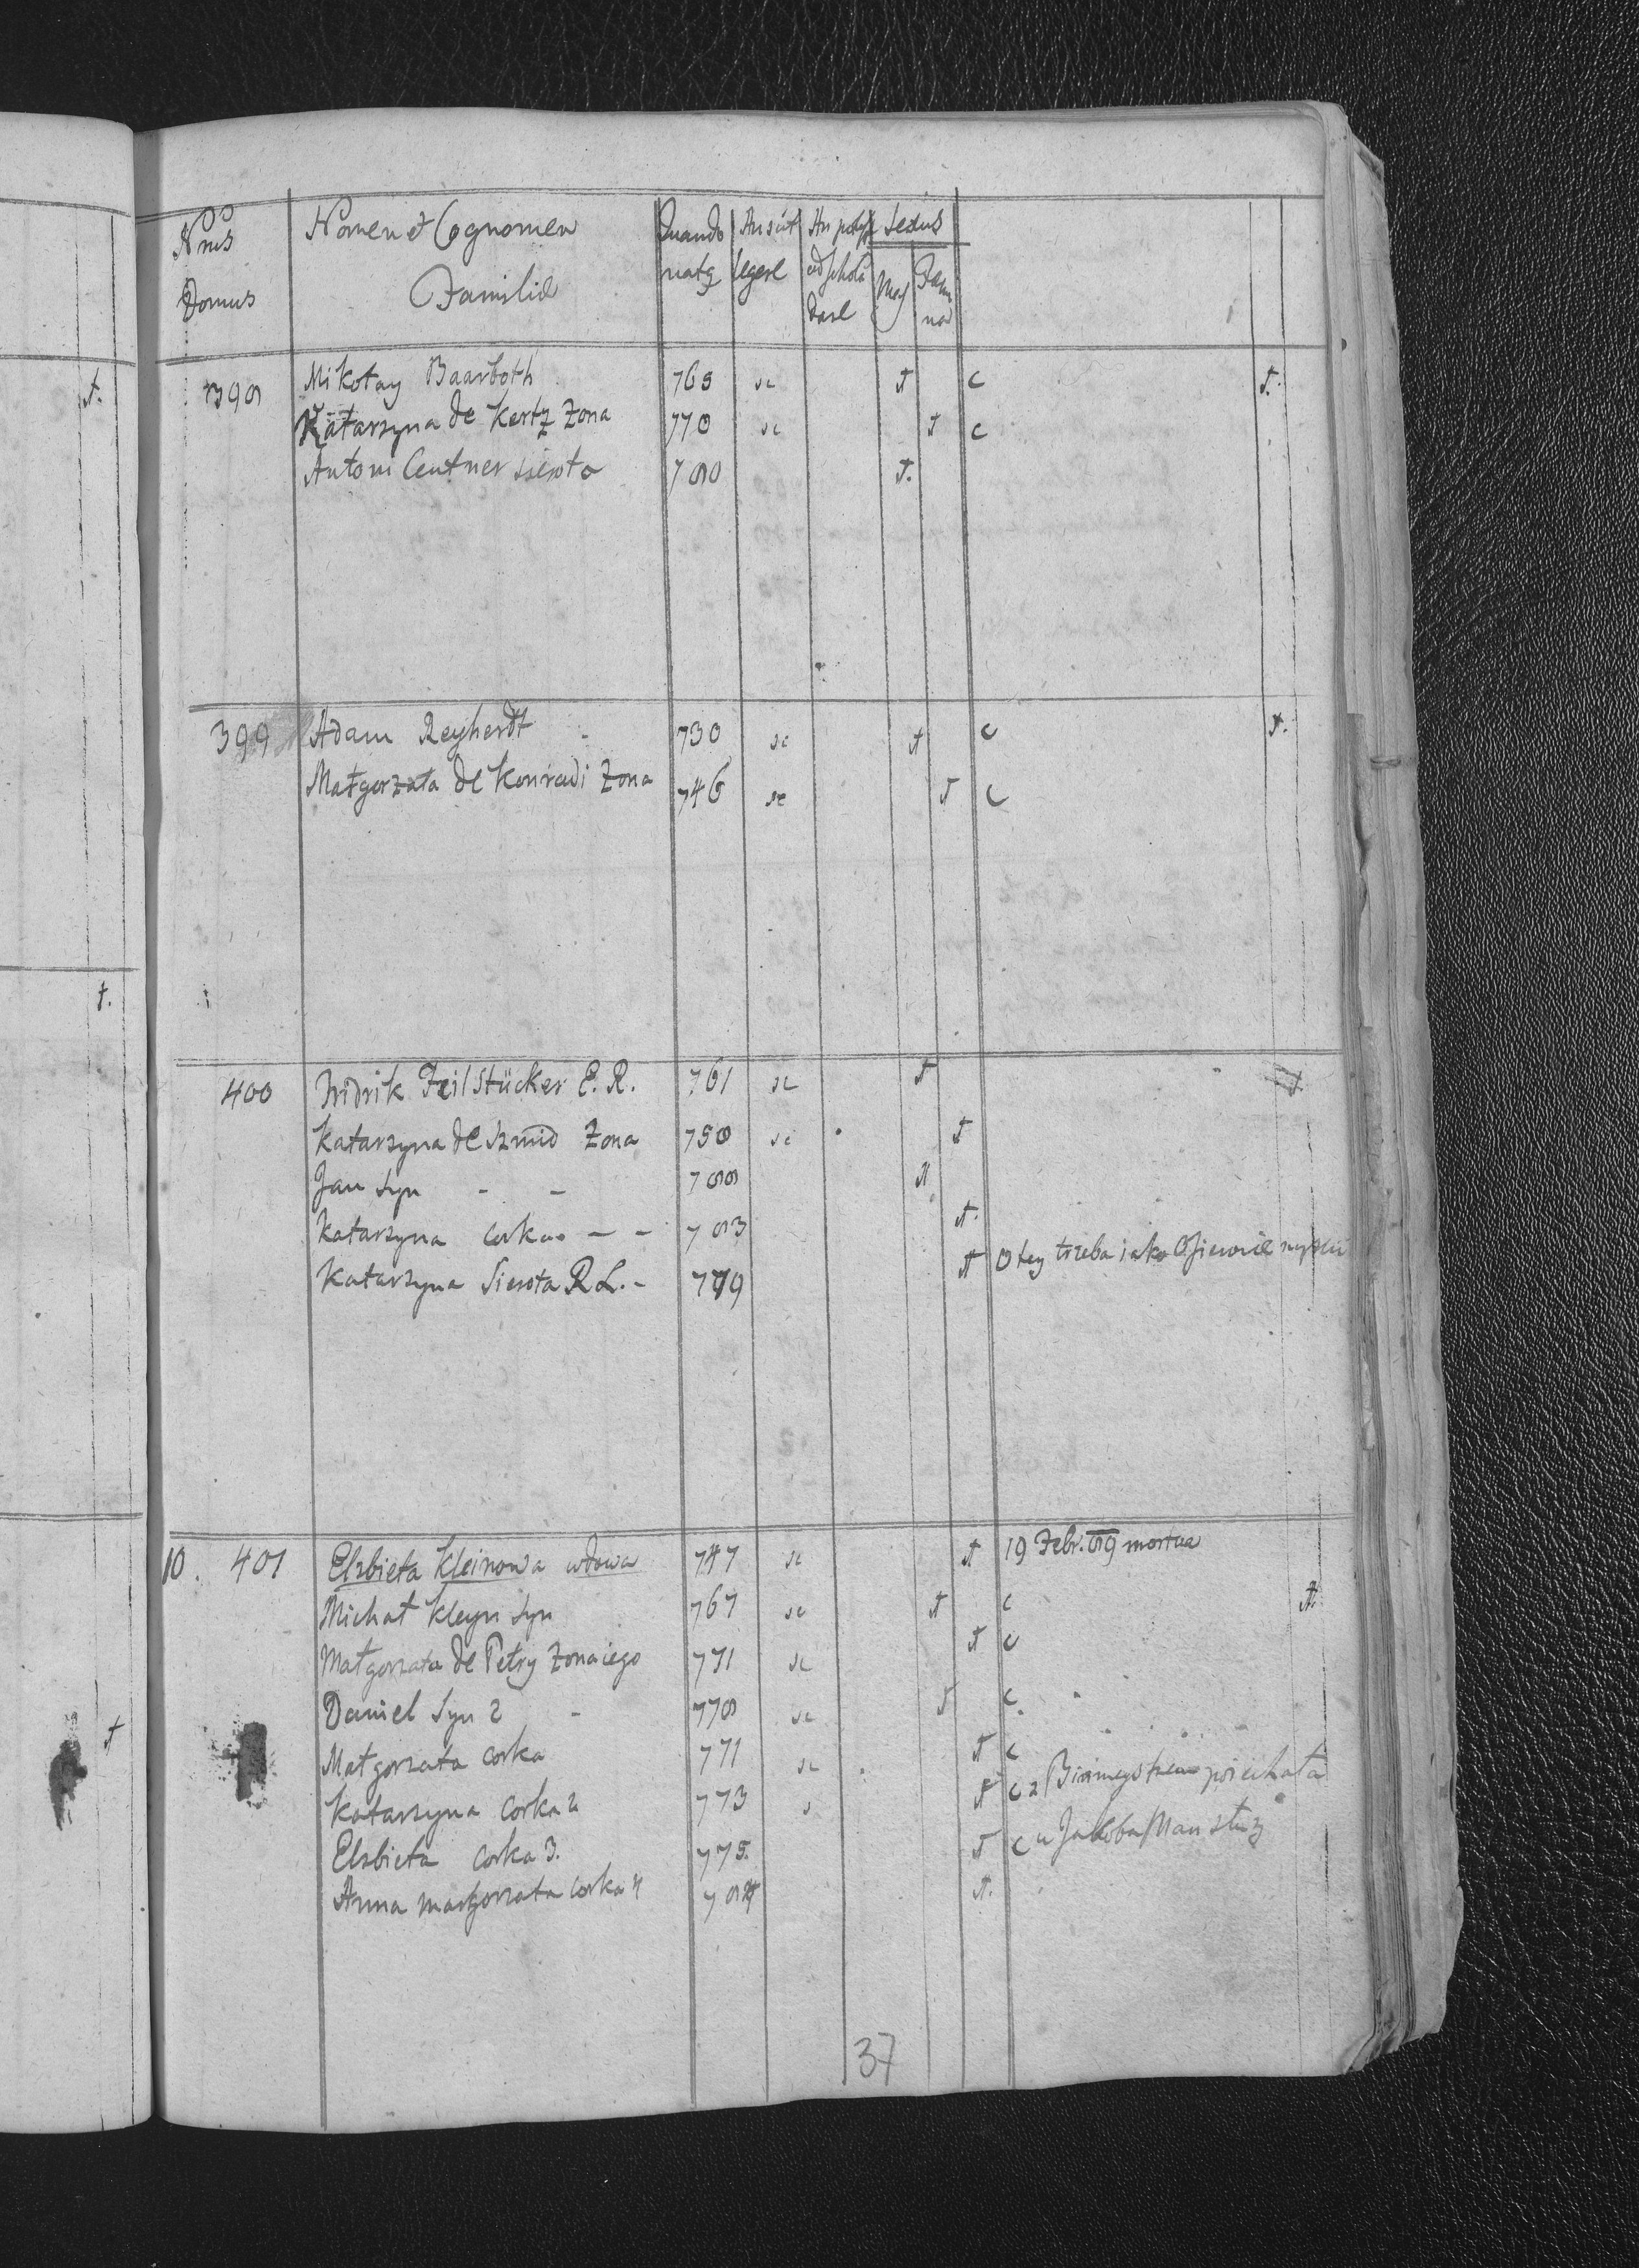 Nrus Domus Nomen et Cognomen Familiae Quando natq An sciat legere An potest ad scholã dare Sexus Mas Faem na
398 Mikołay Baarboth 765 sc † c †.
Katarzyna de Kertz Zona 770 sc † c
Antoni Centner sierota 780 †.
399 Adam Reyherdt 730 sc † c †.
Małgorzata de Konradi Zona 746 sc † c
400 Fridrik Feilstücker E. R. 761 sc †
Katarzyna de Szmid Zona 758 sc †
Jan Syn - - 788 †
Katarzyna Corka - - 783 †.
Katarzyna Sierota R L. - 779 † O tey trzeba iako
10. 401 Elzbieta Kleinowa wdowa 747 sc † 19 Febr. 89 mortua
Michał Kleyn Syn 767 sc † c †.
Małgorzata de Petry Zona iego 771 sc † c
Daniel Syn 2 - 778 sc † c
Małgorzata Corka 771 sc † c
Katarzyna Corka 2 773 s † c z
Elzbieta Corka 3. 775. † c u Jakoba Man służy
Anna Małgorzata Corka 4 784 †.
37